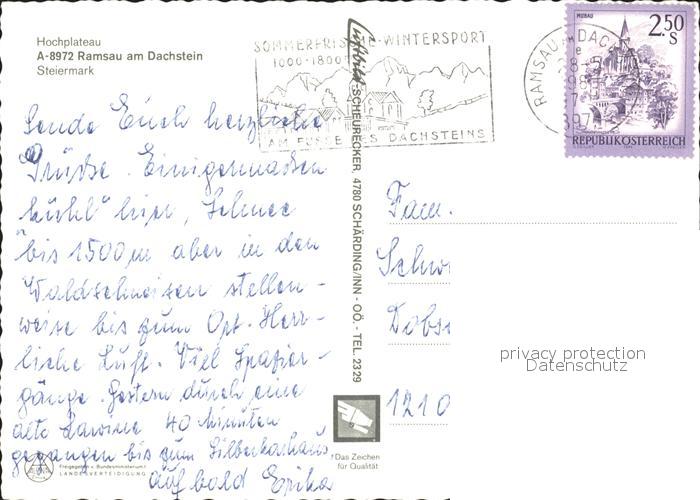 Hochplateau
A-8972 Ramsau am Dachstein
Steiermark
SOMMERFRISCHE-WINTERSPORT
1000-1800
AM FUSSE DES DACHSTEINS
RAMSAU AM DACH
MURAU
2.50
S
REPUBLIK ÖSTERREICH
Sende Euch herzliche
Grüße. Einigermaßen
"kühl" hier, Schnee
bis 1500 m aber in den
Waldschneisen stellen-
weise bis zum Ort. Herr-
liche Luft. Viel Spazier-
gänge. Gestern durch eine
alte Lawine 40 Minuten
gegangen bis zum Silberkarhaus.
Auf bald Erika
Freigegeben v. Bundesministerium f.
LANDESVERTEIDIGUNG
Luftbild SCHEURECKER, 4780 SCHÄRDING/INN - OÖ. - TEL. 23 29
Das Zeichen
für Qualität
Fam.
Schw
Dobs
1210
privacy protection
Datenschutz